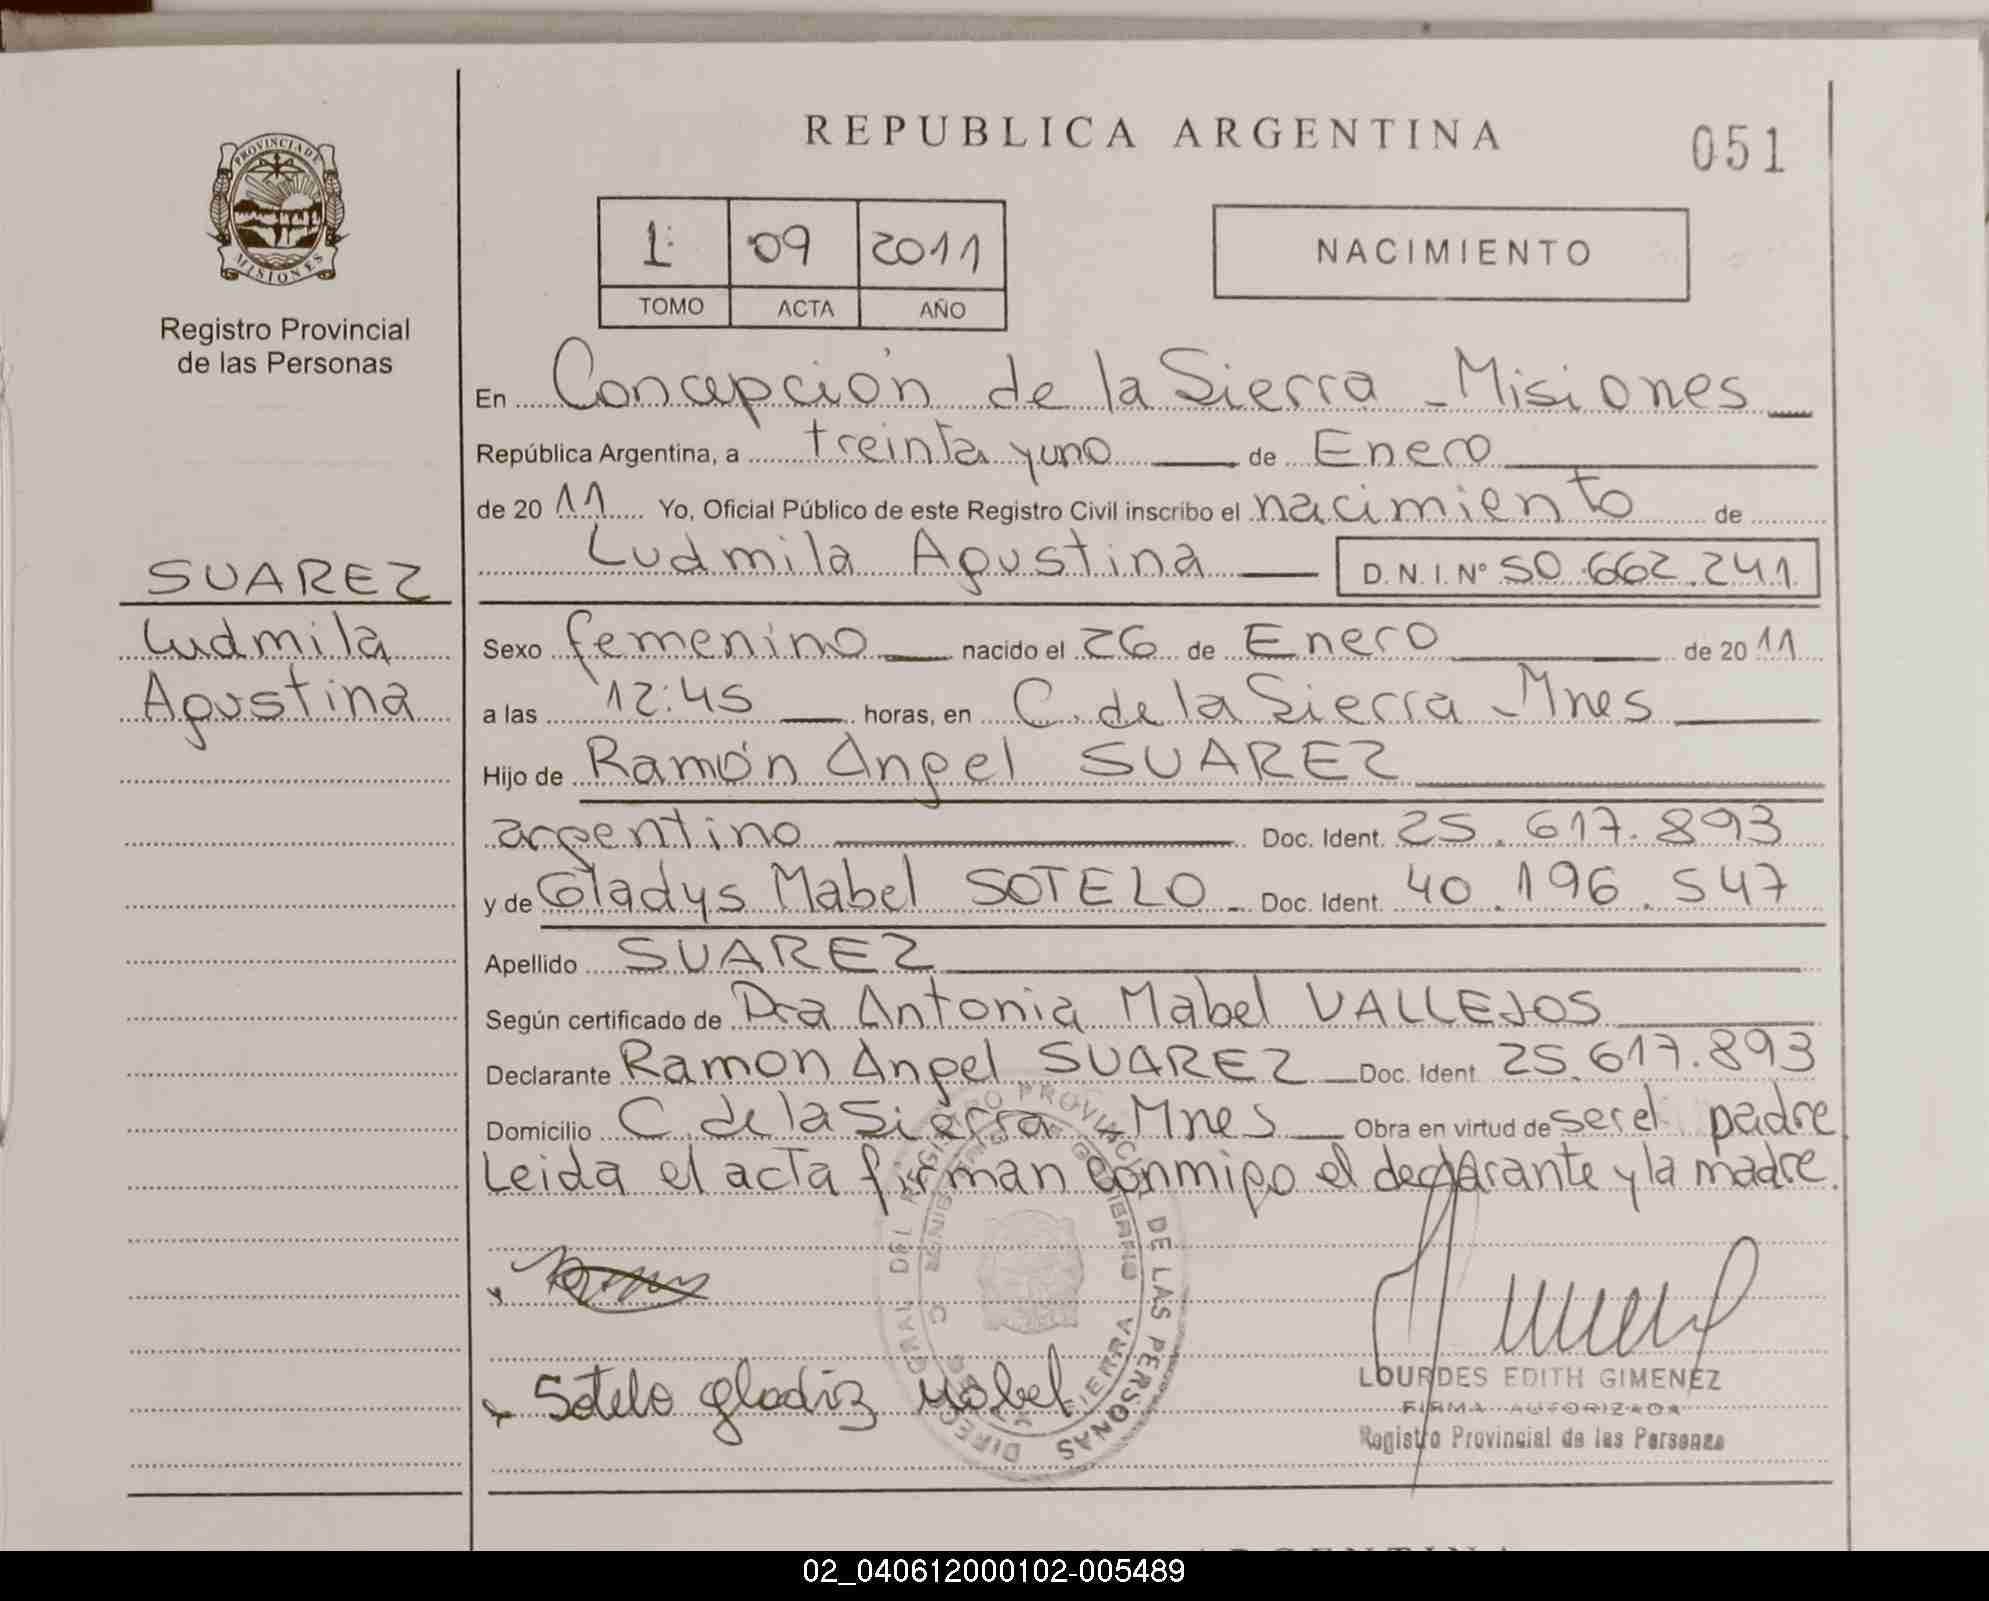 REPUBLICA ARGENTINA
051
PROVINCIA DE
MISIONES
Registro Provincial
de las Personas
1º 09 2011
TOMO ACTA AÑO
NACIMIENTO
En Concepción de la Sierra - Misiones
República Argentina, a treinta y uno de Enero
de 2011 Yo, Oficial Público de este Registro Civil inscribo el nacimiento de
Ludmila Agustina D.N.I. Nº 50.662.241
SUAREZ
Ludmila
Agustina
Sexo femenino nacido el 26 de Enero de 2011
a las 12:45 horas, en C. de la Sierra - Mnes
Hijo de Ramón Angel SUAREZ
argentino Doc. Ident. 25.617.893
y de Gladys Mabel SOTELO - Doc. Ident. 40.196.547
Apellido SUAREZ
Según certificado de Dra Antonia Mabel VALLEJOS
Declarante Ramon Angel SUAREZ Doc. Ident. 25.617.893
Domicilio C. de la Sierra - Mnes Obra en virtud de ser el padre.
Leida el acta firman conmigo el declarante y la madre.
DEL REGISTRO PROVINCIAL DE LAS PERSONAS
SIERRA
Sotelo gladiz Mabel
LOURDES EDITH GIMENEZ
FIRMA AUTORIZADA
Registro Provincial de las Personas
02_040612000102-005489